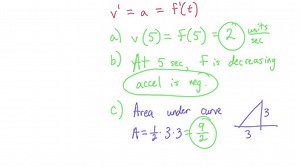 v' = a = f'(t)
a) v(5) = f(5) = 2 units/sec
b) At 5 sec, f is decreasing
accel is neg.
c) Area under curve
A = 1/2 · 3 · 3 = 9/2
3
3